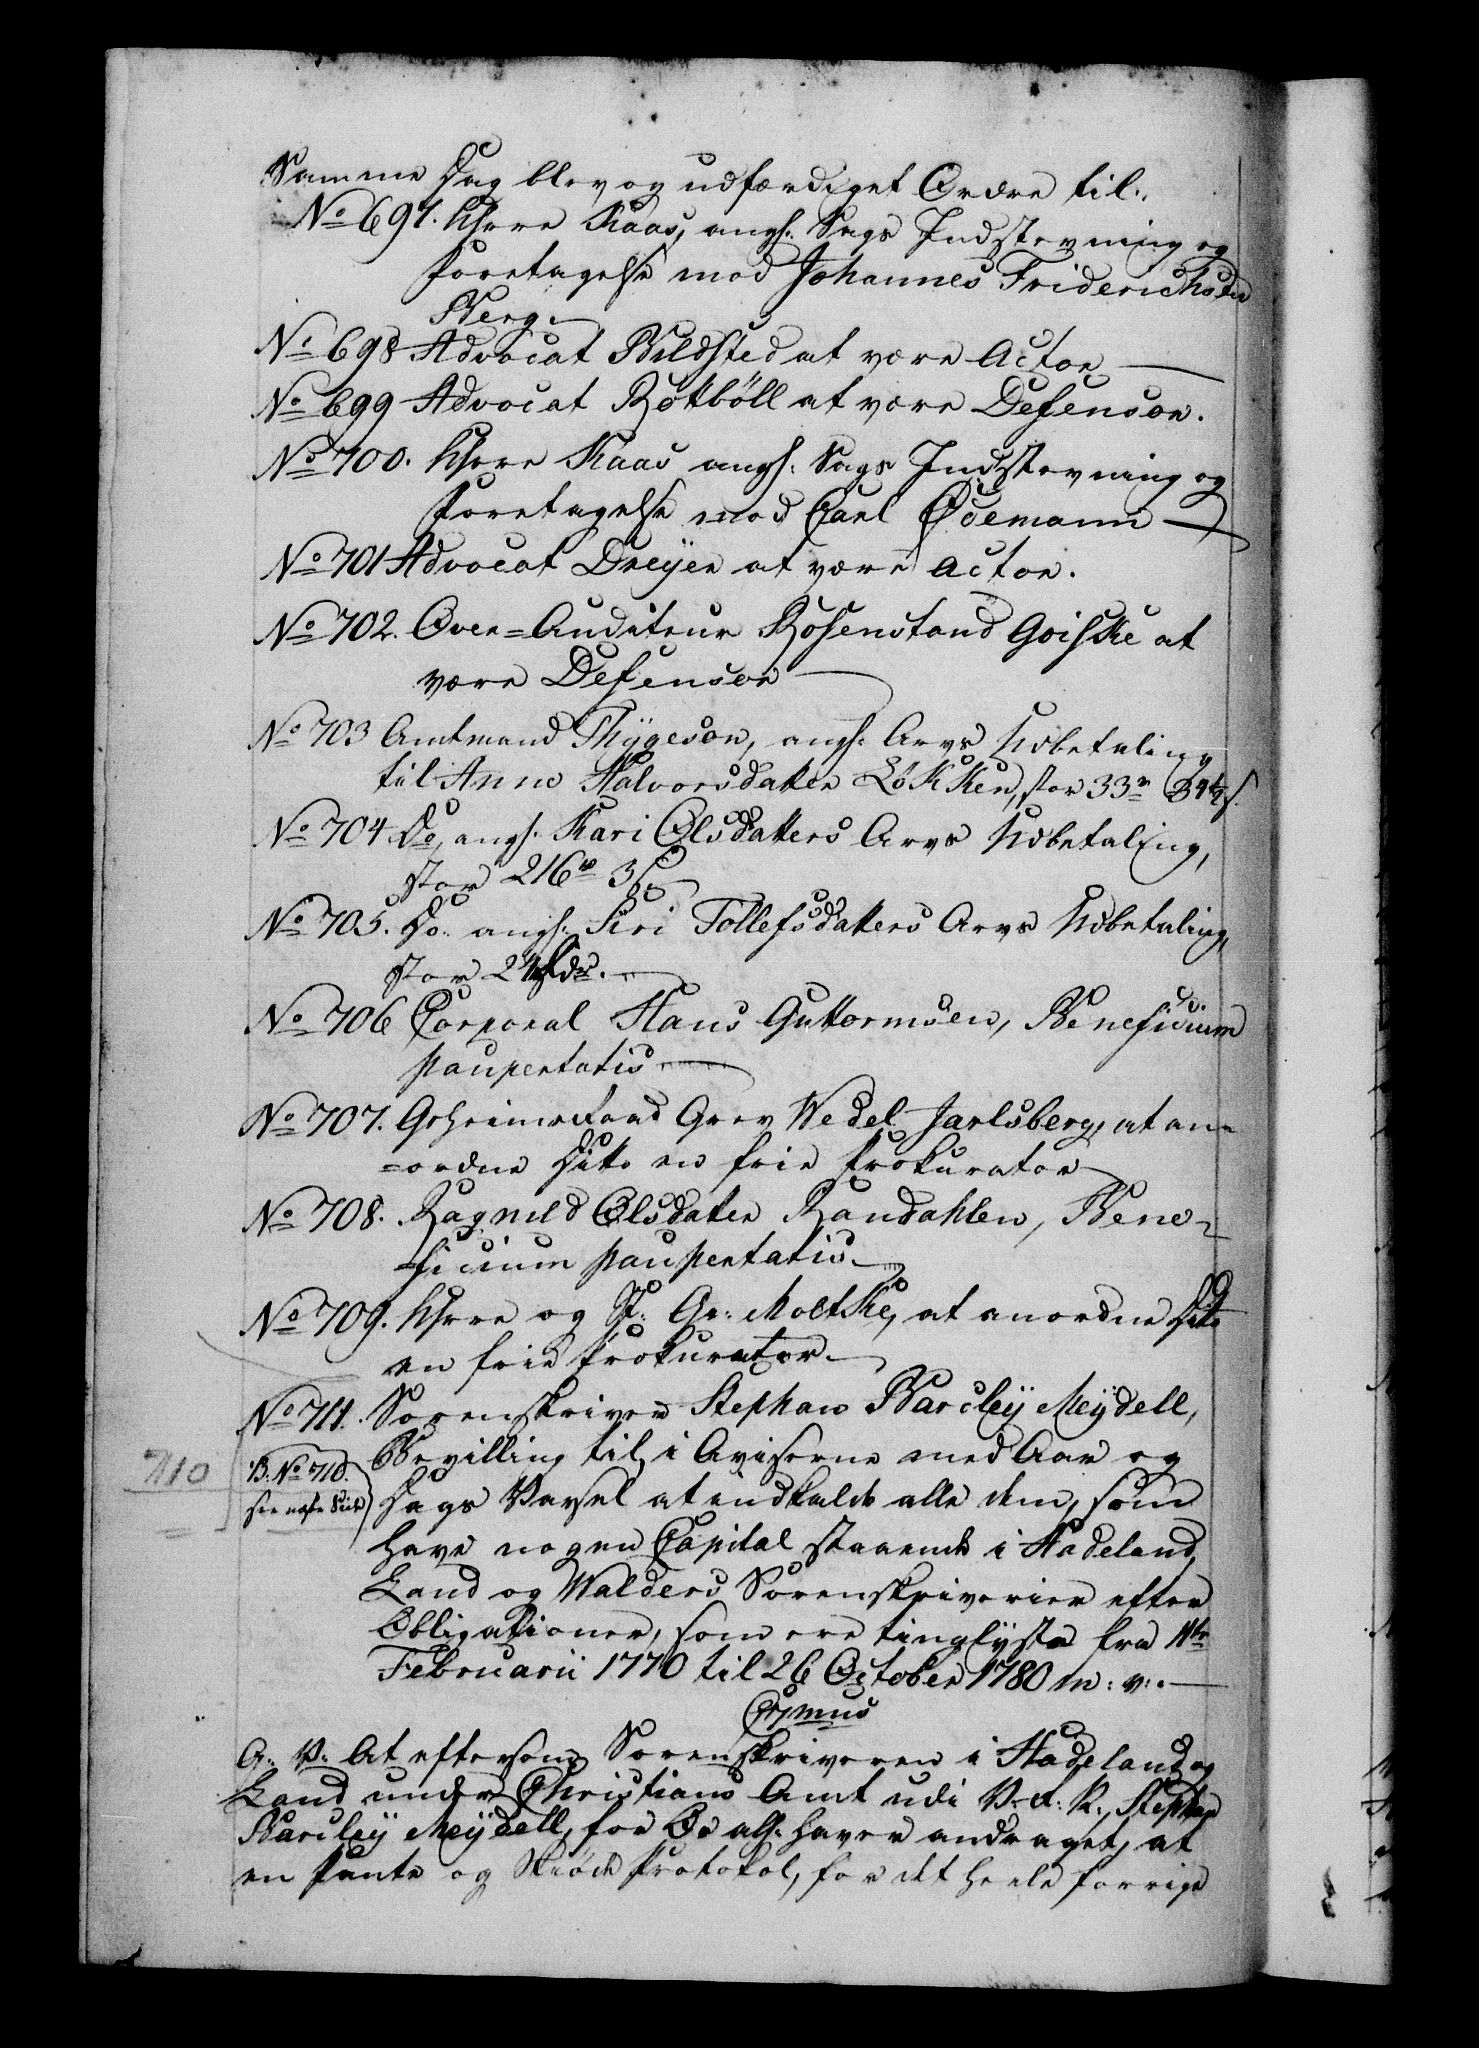 Samme Dag blev og udfærdiget Ordre til:
No 697. Herre Kaas, angs: Sags Indstevning og
Foretagelse mod Johannes Friderichsen
Berg.
No 698 Advocat Bildsted at være Actor
No 699 Advocat Rotböll at være Defensor.
No 700. Herre Kaas angs: Sags Indstevning og
Foretagelse mod Carl Ödemann
No 701 Advocat Dreÿer at være Actor.
No 702. Over-Auditeur Rosenstand Goiske at
være Defensor
No 703 Amtmand Thÿgeson, angs: Arvs Udbetaling
til Anne Halvorsdatter Løkken, stor 33 r
No 704 Do, angs: Kari Olsdatters Arvs Udbetaling,
stor 216 r 3 s
No 705. Do. angs: Siri Tollefsdatters Arvs Udbetaling,
stor
No 706 Corporal Hans Guttormsen, Beneficium
paupertatis
No 707. Geheimeraad Grev Wedel Jarlsberg, at an-
=ordne Ditto en frie Prokurator
No 708. Ragnild Olsdatter Randahlen, Bene-
=ficium paupertatis.
No 709. Herre og St: Gr: Moltke, at anordne Ditto
en frie Prokurator.
No 711. Sorenskriver Stephan Barcleÿ Meÿdell,
Bevilling til, i Aviserne med Aar og
710
B. No 710.
see næste Side
Dags Varsel at indkalde alle dem, som
have nogen Capital staaende i Hadeland,
Land og Walders Sorenskriverier efter
Obligationer, som ere tinglÿste fra 11te
Februarii 1770 til 26 October 1780 m: v:.
A: V: At eftersom Sorenskriveren i Hadeland og
Land under Christians Amt udi V. R: N:, Stephan
Barcleÿ Meÿdell, for Os all: haver andraget, at
en Pante og Skiöde Protokol, for det heele forrige